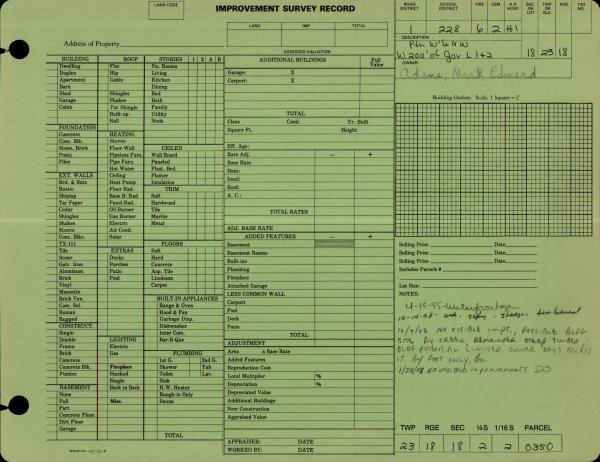 LAND CODE
IMPROVEMENT SURVEY RECORD
ROAD DISTRICT
SCHOOL DISTRICT
FIRE
CEM.
A.P. HOSP.
SEC. OR LOT
TWP. OR BLK.
RGE.
TAX NO.
228 6 2 #1
DESCRIPTION
Ptn W½ NW
W 200' of Gov L 1+2 18 23 18
OWNER:
Adams, Mark Edward
LAND IMP. TOTAL
ASSESSED VALUATION
Address of Property
BUILDING ROOF STORIES 1 2 A B
Dwelling Flat No. Rooms
Duplex Hip Living
Apartment Gable Kitchen
Barn Dining
Shed Shingles Bed
Garage Shakes Bath
Cabin Pat Shingle Family
Built-up Utility
Roll Nook
FOUNDATION
Concrete HEATING
Conc. Blk. Stoves CEILED
Stone, Brick Floor-Wall Wall Board
Posts Pipeless Furn. Paneled
Piles Pipe Furn. Plast. Brd.
Hot Water Plaster
EXT. WALLS Ceiling Insulation
Brd. & Bats Heat Pump TRIM
Rustic Floor Rad. Soft
Shiplap Base B. Rad. Hardwood
Tar Paper Panel Rad. Tile
Cedar Oil Burner Marble
Shingles Gas Burner Metal
Shakes Electric
Stucco Air Cond.
Conc. Blks. Solar
TX-111 FLOORS
Tile EXTRAS Soft
Stone Decks Hard
Galv. Iron Porches Concrete
Aluminum Patio Asp. Tile
Brick Pool Linoleum
Vinyl Carpet
Masonite
Brick Ven. BUILT-IN APPLIANCES
Com. Sel. Range & Oven
Roman Hood & Fan
Ragged Garbage Disp.
CONSTRUCT. Dishwasher
Single Inter Com.
Double LIGHTING Bar-B-Que
Frame Electric
Brick Gas PLUMBING
Concrete 1st G. 2nd G.
Concrete Blk. Fireplace Shower Tub
Pumice Stacked Toilet Lav.
Single Sink
BASEMENT Back to Back H.W. Heater
None Rough-in Only
Full Misc. Sauna
Part
Concrete Floor
Dirt Floor
Garage
TOTAL
ADDITIONAL BUILDINGS Full Value
Garage: X
Carport: X
TOTAL
Class Cond. Yr. Built
Square Ft. Height
Eff. Age:
Rate Adj. − +
Base Rate
Heat:
Insul:
Roof:
A. C.:
TOTAL RATES
ADJ. BASE RATE
ADDED FEATURES − +
Basement
Basement Rooms
Built-ins
Plumbing
Fireplace
Attached Garage
LESS COMMON WALL
Carport
Pool
Deck
Patio
TOTAL
ADJUSTMENT
Area x Base Rate
Added Features
Reproduction Cost
Local Multiplier %
Depreciation %
Depreciated Value
Additional Buildings
New Construction
Appraised Value
APPRAISER: DATE
WORKED BY: DATE
Building Outline: Scale, 1 Square = 2'
Selling Price Date
Selling Price Date
Selling Price Date
Includes Parcels #
Lot Size:
NOTES:
4-15-95 Waterfrontage
10/7/02 NO VISIBLE IMPS., POSSIBLE BLDG
SITE BY CREEK REMAINDER STEEP TIMBER,
BLDG POTENTIAL LIMITED, OWNER SAYS ACCESS
IS BY FOOT ONLY,
1/28/08 NO VISIBLE improvements DO
TWP RGE SEC ¼S 1/16 S PARCEL
23 18 18 2 2 0350